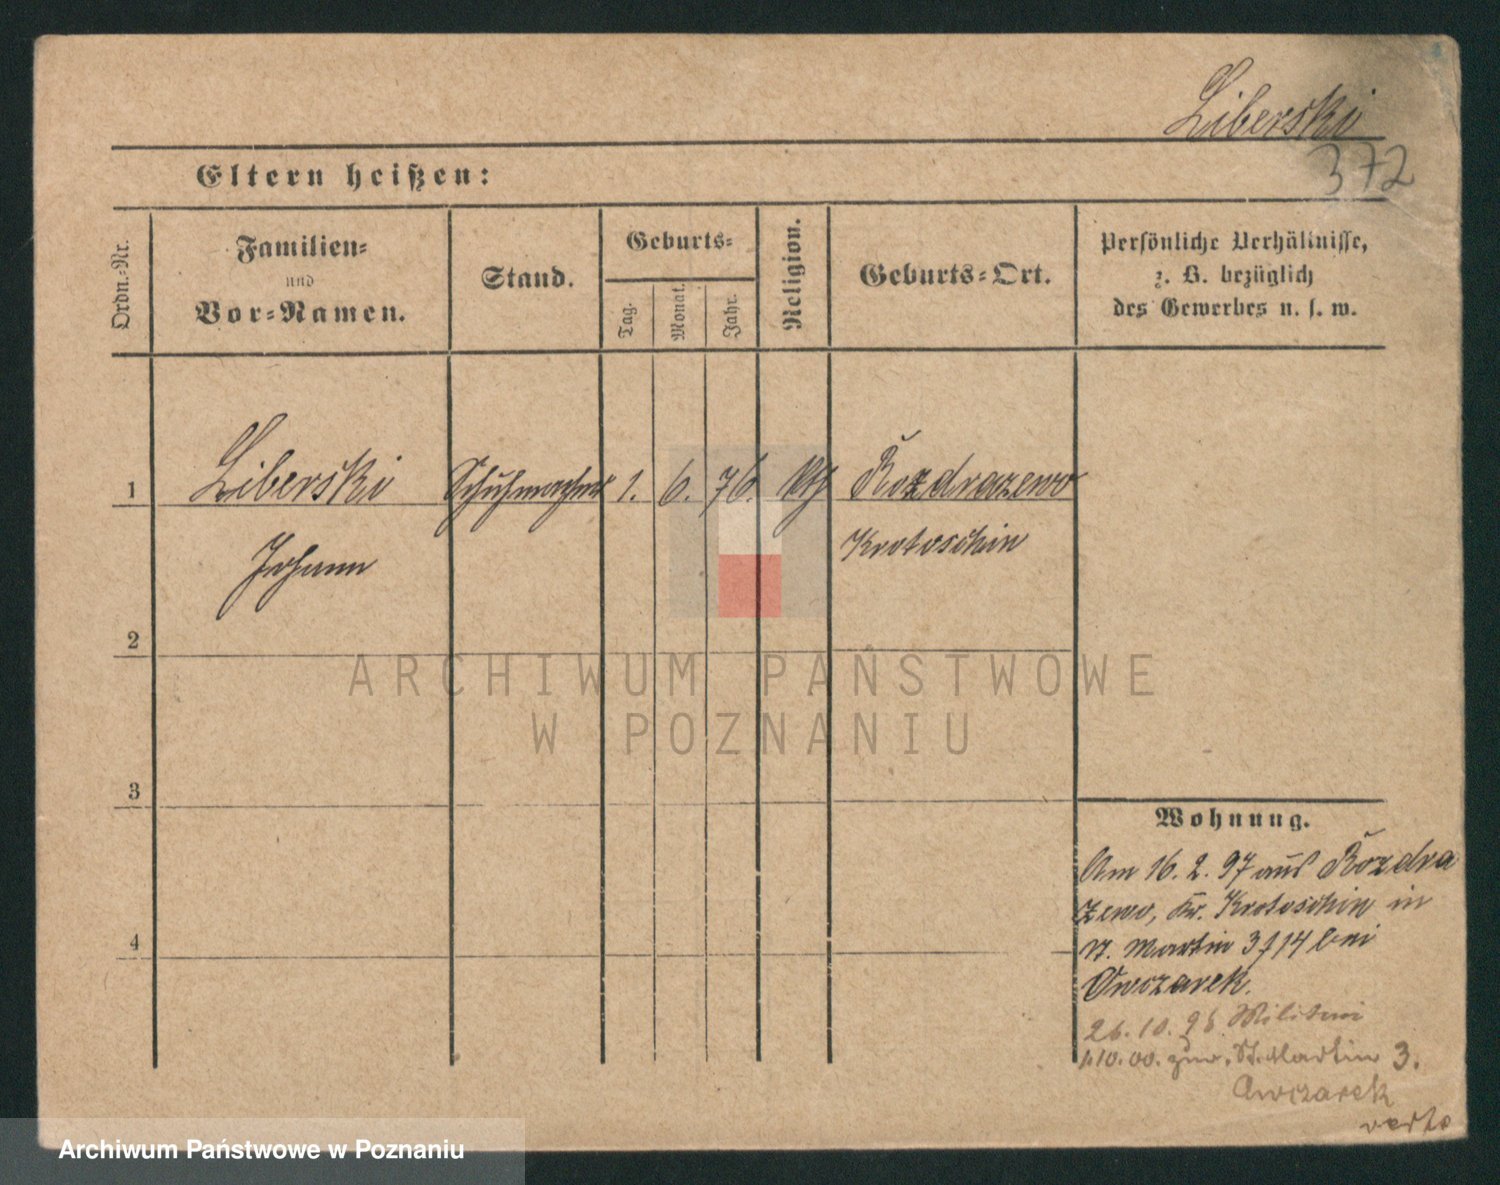 Liberski
372
Eltern heißen:
Ordn.-Nr.
Familien-
und
Vor-Namen.
Stand.
Geburts-
Tag.
Monat.
Jahr.
Religion.
Geburts-Ort.
Persönliche Verhältnisse,
z. B. bezüglich
des Gewerbes u. s. w.
1 Liberski Schuhmacher 1. 6. 76. kth Rozdrazewo
Johann Krotoschin
2
3
4
ARCHIWUM PAŃSTWOWE
W POZNANIU
Wohnung.
Am 16. 2. 97 aus Rozdra
zewo, Kr. Krotoschin in
St. Martin 3 f 14 bei
Owczarek.
26. 10. 96 Militair
1 10. 00. zur. St. Martin 3.
Owczarek
verte
Archiwum Państwowe w Poznaniu